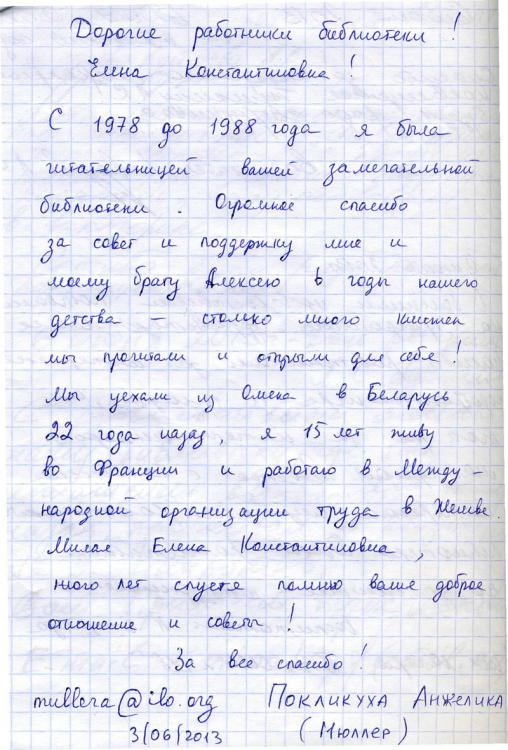 Дорогие работники библиотеки!
Елена Константиновна!
С 1978 до 1988 года я была
читательницей вашей замечательной
библиотеки. Огромное спасибо
за совет и поддержку мне и
моему брату Алексею в годы нашего
детства — столько много книжек
мы прочитали и открыли для себя!
Мы уехали из Омска в Беларусь
22 года назад, я 15 лет живу
во Франции и работаю в Между-
народной организации труда в Женеве.
Милая Елена Константиновна,
много лет спустя помню ваше доброе
отношение и советы!
За все спасибо!
mullera@ilo.org Покликуха Анжелика
3/06/2013 (Мюллер)